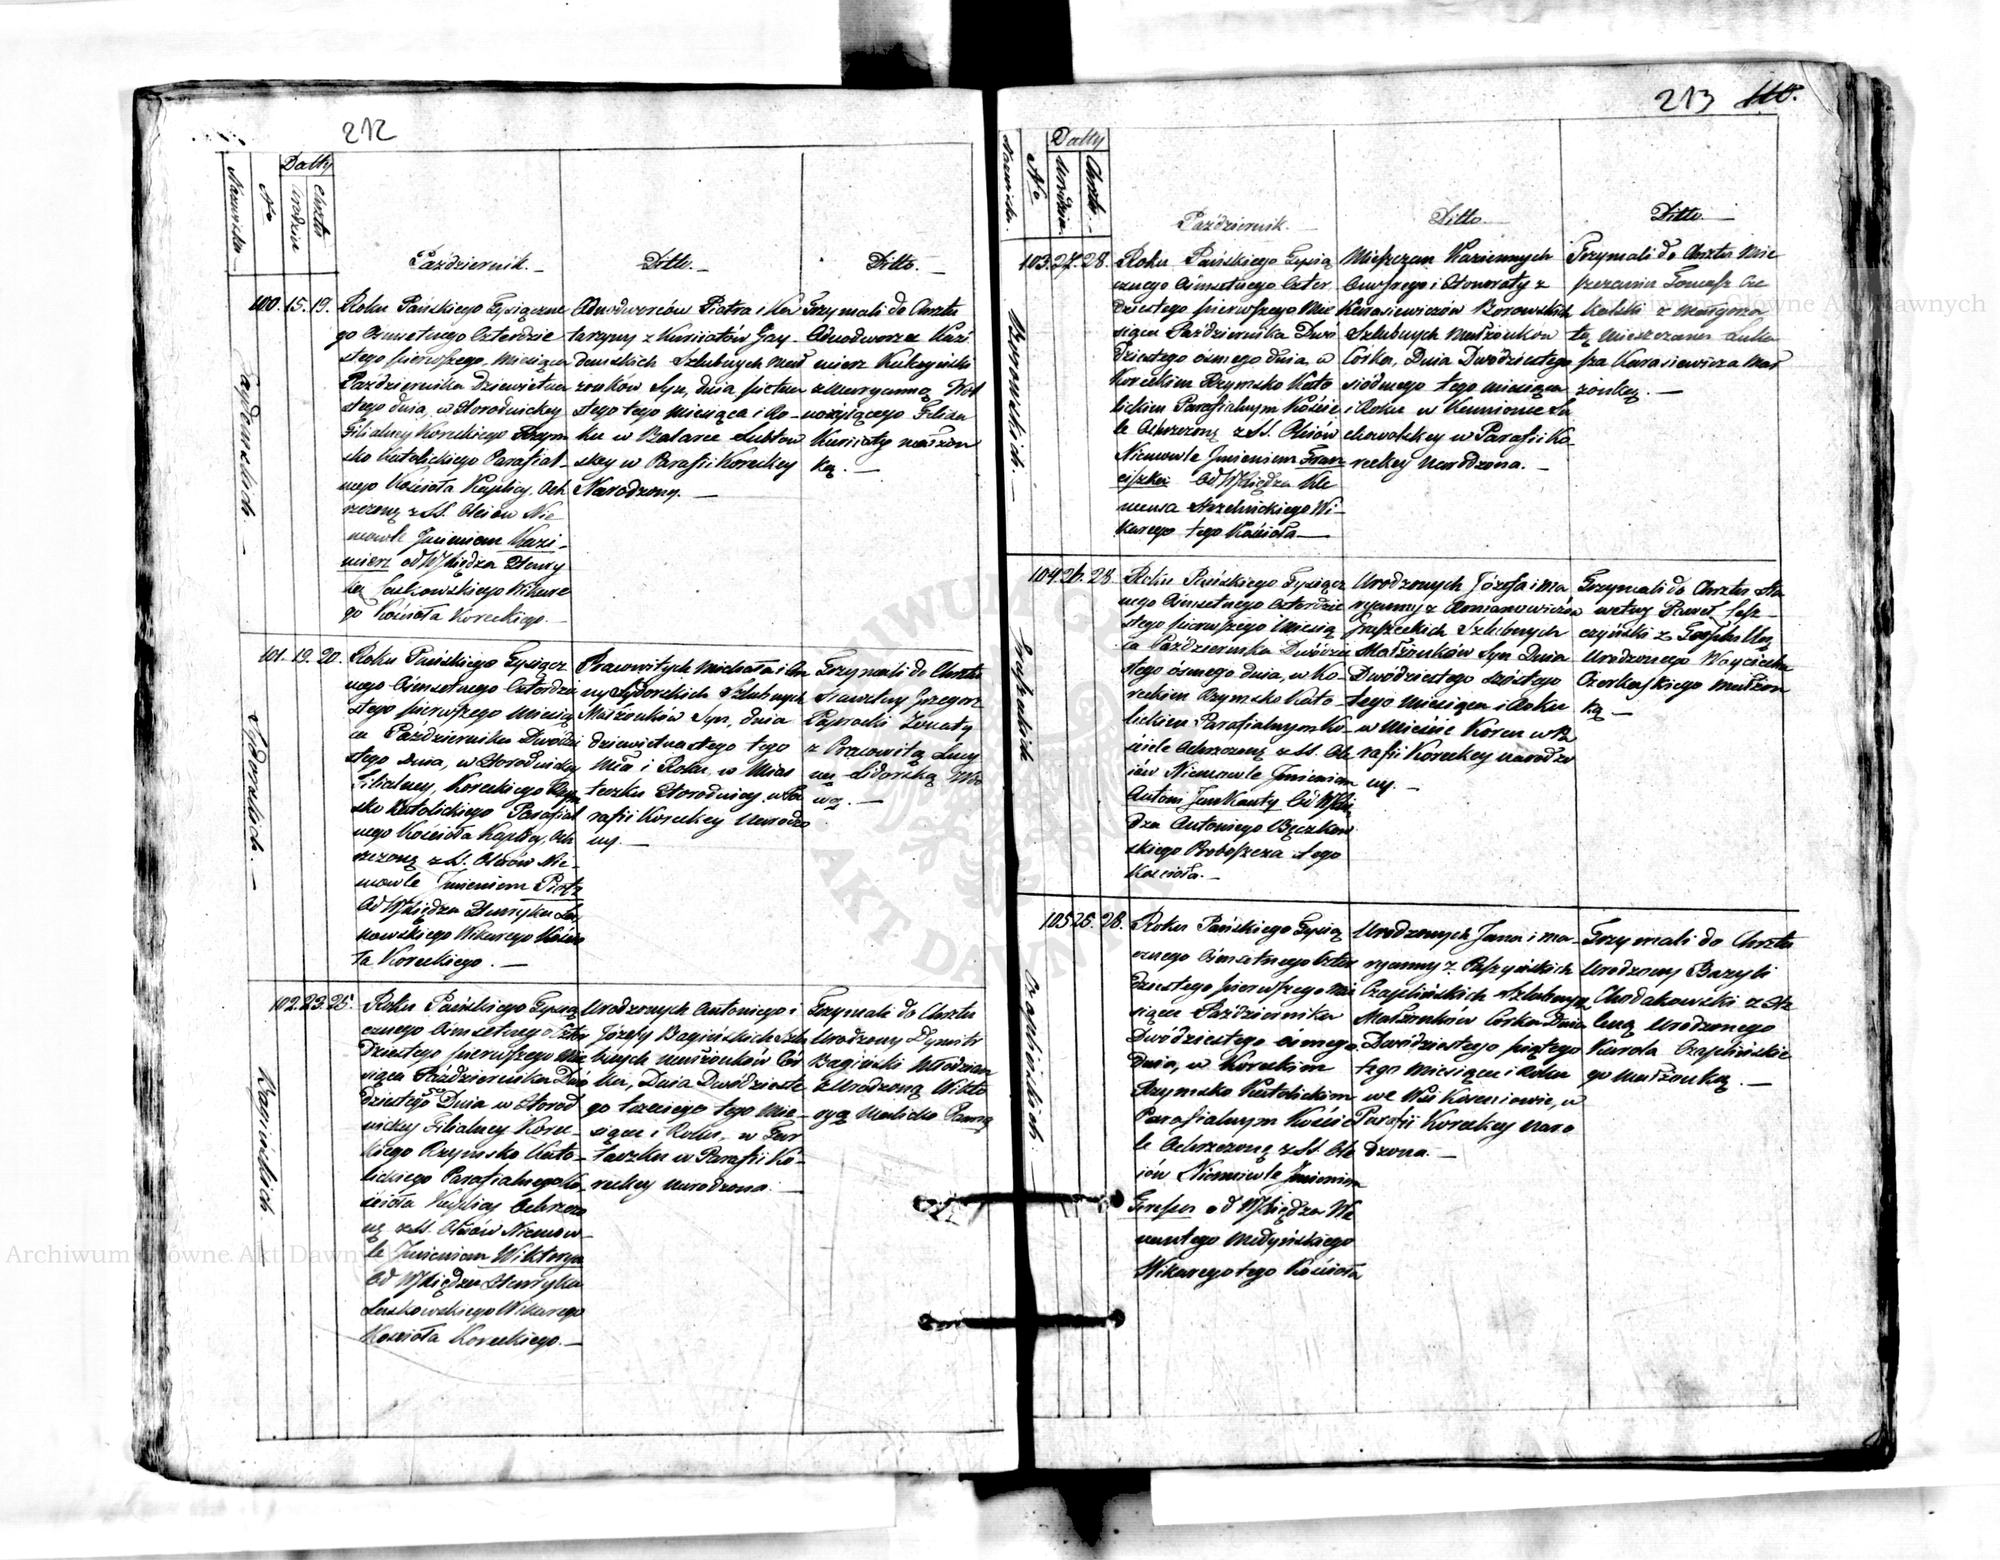 212
Datty
Nazwiska
No
Urodzin
Chrztu
Październik.
Ditto.
Ditto.
100. 15. 19.
Gaydamskich
Roku Pańskiego Tysiączne
go Ośmsetnego Czterdzie
stego pierwszego, Miesiąca
Października Dziewiętna
stego dnia, w Horodnickiey
Filialney Koreckiego Rzym
sko Katolickiego Parafial
nego Kościoła Kaplicy, Och
rzczony z SS. Olejów Nie
mowle Imieniem Kazi
mierz od W. Xiędza Henry
ka Laskowskiego Wikare
go Kościoła Koreckiego.
Odnodworców Piotra i Ka
tarzyny z Kuriatów Gay
damskich Szlubnych Mał
żonków Syn, dnia piętna
stego tego Miesiąca i Ro
ku w Lubtow
skey w Parafii Koreckiey
Narodzony.
Trzymali do Chrztu
Odnodworze Kazi
mierz
z Maryanną
Felixa
Kuriaty małżon
ką.
101. 19. 20.
Sidorskich
Roku Pańskiego Tysiącz
nego Ośmsetnego Czterdzie
stego pierwszego Miesią
ca Października Dwódzie
stego Dnia, w Horodnickiey
Filialney, Koreckiego Rzym
sko Katolickiego Parafial
nego Kościoła Kaplicy, Och
rzczony z SS. Olejów Nie
mowle Imieniem Piotr
Od W. Xiędza Henryka Las
kowskiego Wikarego Kościo
ła Koreckiego.
Pracowitych Michała i An
ny Sydorskich Szlubnych
Małżonków Syn, dnia
dziewiętnastego tego
Mca i Roku, w Mias
teczku Horodnicy, w Pa
rafii Koreckiey Narodzo
ny.
Trzymali do Chrztu
Sławetny Grzegorz
Żonaty
z Pracowitą Lucy
ną Sidorską Wdo
wą.
102. 23. 25.
Bagińskich
Roku Pańskiego Tysią
cznego Ośmsetnego Czter
dziestego pierwszego Mie
siąca Października Dwó
dziestego Dnia w Horod
nickiey Filialney Korec
kiego Rzymsko Kato
lickiego Parafialnego Ko
ścioła Kaplicy Ochrzczo
ny z SS. Olejów Niemow
le Imieniem Wiktorya
Od W. Xiędza Henryka
Laskowskiego Wikarego
Kościoła Koreckiego.
Urodzonych Antoniego i
Józefy Bagińskich Szlu
bnych małżonków Cór
ka, Dnia Dwódzieste
go trzeciego tego Mie
siąca i Roku, w
w Parafii Ko
reckiey narodzona.
Trzymali do Chrztu
Urodzony Dymitr
Bagiński Młodzian
z Urodzoną Wikto
ryą Panną
213 110.
Datty
Nazwiska
No
Urodzin
Chrztu
Październik.
Ditto.
Ditto.
103. 27. 28.
Borowskich
Roku Pańskiego Tysią
cznego Ośmsetnego Czter
dziestego pierwszego Mie
siąca Października Dwó
dziestego ósmego dnia, w
Koreckim Rzymsko Kato
lickim Parafialnym Koście
le Ochrzczony z SS. Olejów
Niemowle Imieniem Fran
ciszka Od W. Xiędza Kle
mensa Strzelnickiego Wi
karego tego Kościoła
Mieszczan Kaziennych
Onufrego i Honoraty z
Karasiewiczów Borowskich
Szlubnych Małżonków
Córka, Dnia Dwódziestego
siódmego tego miesiąca
i Roku w Ła
chowolskiey w Parafii Ko
reckiey Narodzona.
Trzymali do Chrztu Mie
szczanin Tomasz
z Małgorza
tą Mieszczanina Łuka
sza Karasiewicza Mał
żonką.
104. 26. 28.
Gruszeckich
Roku Pańskiego Tysiącz
nego Ośmsetnego Czterdzie
stego pierwszego Miesią
ca Października Dwódzie
stego ósmego dnia, w Ko
reckim Rzymsko Kato
lickim Parafialnym Ko
ściele Ochrzczony z SS. Ole
jów Niemowle Imieniem
Antoni Jan Kanty Od W. Xię
dza Antoniego Bęczkow
skiego Proboszcza tego
Kościoła.
Urodzonych Józefa i Ma
ryanny z Romanowiczów
Gruszeckich Szlubnych
Małżonków Syn Dnia
Dwódziestego szóstego
tego Miesiąca i Roku
w Mieście Korcu w Pa
rafii Koreckiey narodzo
ny.
Trzymali do Chrztu Sła
wetny Paweł Lesz
czyński z Teofilą
Urodzonego Woyciecha
Czerkaskiego małżon
ką
105. 25. 28.
Czaplińskich
Roku Pańskiego Tysią
cznego Ośmsetnego Czter
dziestego pierwszego Mie
siąca Października
Dwódziestego ósmego
Dnia, w Koreckim
Rzymsko Katolickim
Parafialnym Koście
le Ochrzczony z SS. Ole
jów Niemowle Imieniem
Teresa od W. Xiędza We
nantego Medyńskiego
Wikarego tego Kościoła
Urodzonych Jana i Ma
ryanny z Paszyńskich
Czaplińskich Szlubnych
Małżonków Córka Dnia
Dwódziestego piątego
tego Miesiąca i Roku
we Wsi Koreniowie, w
Parafii Koreckiey Naro
dzona.
Trzymali do Chrztu
Urodzony Bazyli
Chodakowski z He
leną Urodzonego
Karola Czaplińskie
go Małżonką.
Archiwum Główne Akt Dawnych
Archiwum Główne Akt Dawnych